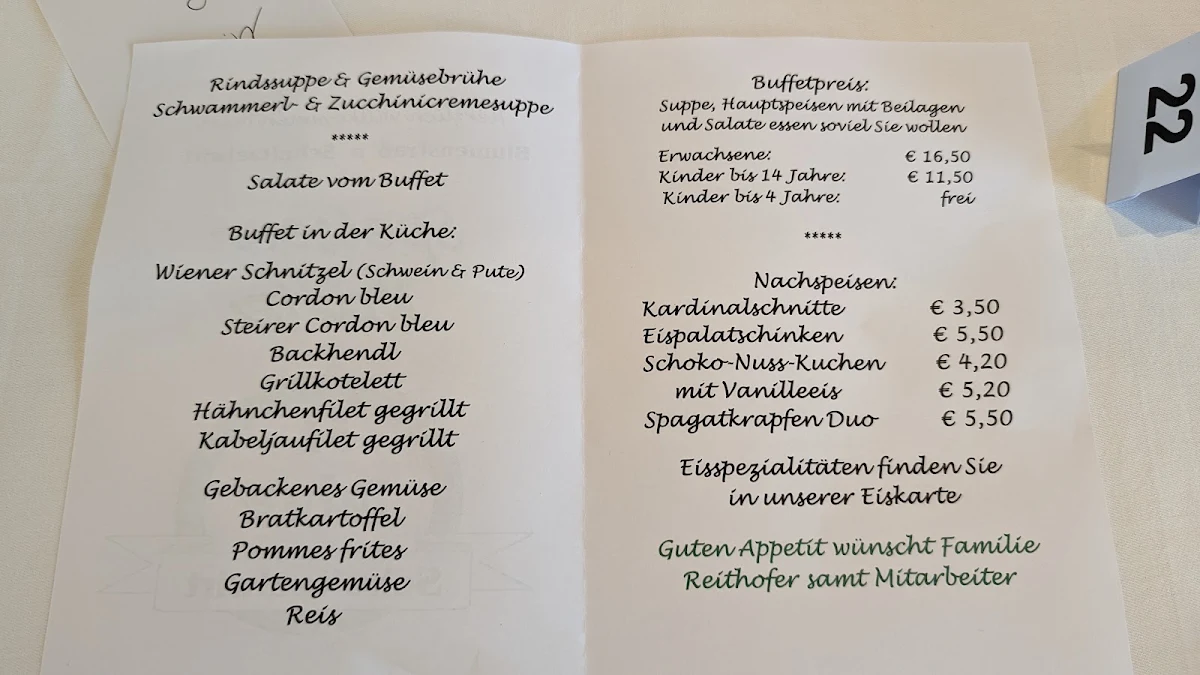 Rindssuppe & Gemüsebrühe
Schwammerl- & Zucchinicremesuppe
*****
Salate vom Buffet
Buffet in der Küche:
Wiener Schnitzel (Schwein & Pute)
Cordon bleu
Steirer Cordon bleu
Backhendl
Grillkotelett
Hähnchenfilet gegrillt
Kabeljaufilet gegrillt
Gebackenes Gemüse
Bratkartoffel
Pommes frites
Gartengemüse
Reis
Buffetpreis:
Suppe, Hauptspeisen mit Beilagen
und Salate essen soviel Sie wollen
Erwachsene: € 16,50
Kinder bis 14 Jahre: € 11,50
Kinder bis 4 Jahre: frei
*****
Nachspeisen:
Kardinalschnitte € 3,50
Eispalatschinken € 5,50
Schoko-Nuss-Kuchen € 4,20
mit Vanilleeis € 5,20
Spagatkrapfen Duo € 5,50
Eisspezialitäten finden Sie
in unserer Eiskarte
Guten Appetit wünscht Familie
Reithofer samt Mitarbeiter
22